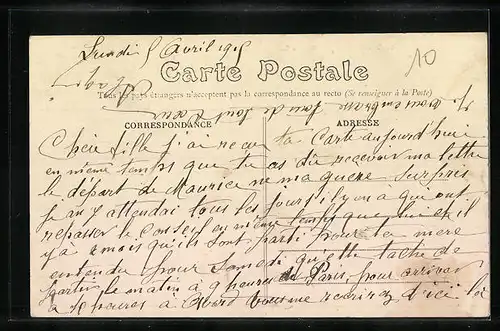 Lundi 5 Avril 1915
10
Carte Postale
Tous les pays étrangers n'acceptent pas la correspondance au recto (Se renseigner à la Poste)
je vous embrasse tous de tout cœur
CORRESPONDANCE ADRESSE
Chère fille j'ai recu ta Carte aujourd'hui
en même temps que tu as dû recevoir ma lettre
le départ de Maurice ne ma guere surpris
je my attendai tous les jours il y en a que ont
repasser le Conseil en même temps que lui et il
y a mois qu'ils sont parti pour la mere
entendu pour Samedi tache de
partir le matin à 9 heures de Paris pour arriver
à heures à vous me reecrirez d'ici là